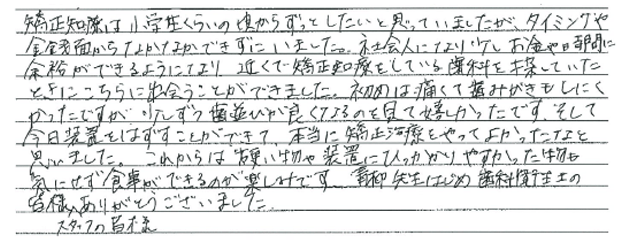 矯正知療は小学生くらいの頃からずっとしたいと思っていましたが、タイミングや
金銭面からなかなかできずにいました。社会人になり少しお金や時間に
余裕ができるようになり 近くで矯正知療をしている歯科を探していた
ときにこちらに出会うことができました。初めは痛くて歯みがきもしにく
かったですが 少しずつ歯並びが良くなるのを見て嬉しかったです。そして
今日装置をはずすことができて、本当に矯正治療をやってよかったなと
思いました。これからは硬い物や装置にひっかかりやすかった物も
気にせず食事ができるのが楽しみです。青柳先生はじめ歯科衛生士の
皆様、ありがとうございました。
スタッフの皆様